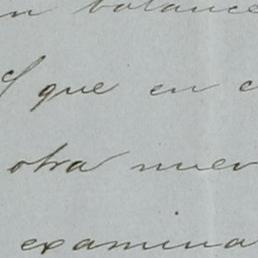 n balance
y que en c
otra nuev
examina